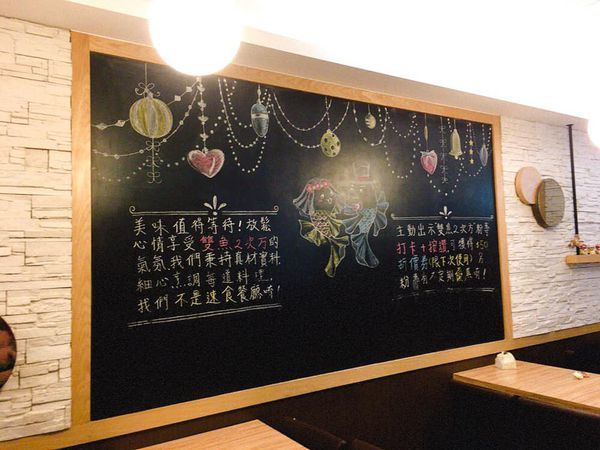 美味值得等待！放鬆
心情享受雙魚2次方的
氣氛我們秉持真材實料
細心烹調每道料理
我們不是速食餐廳唷！
主動出示雙魚2次方粉專
打卡＋按讚可獲得$50
折價券(限下次使用)